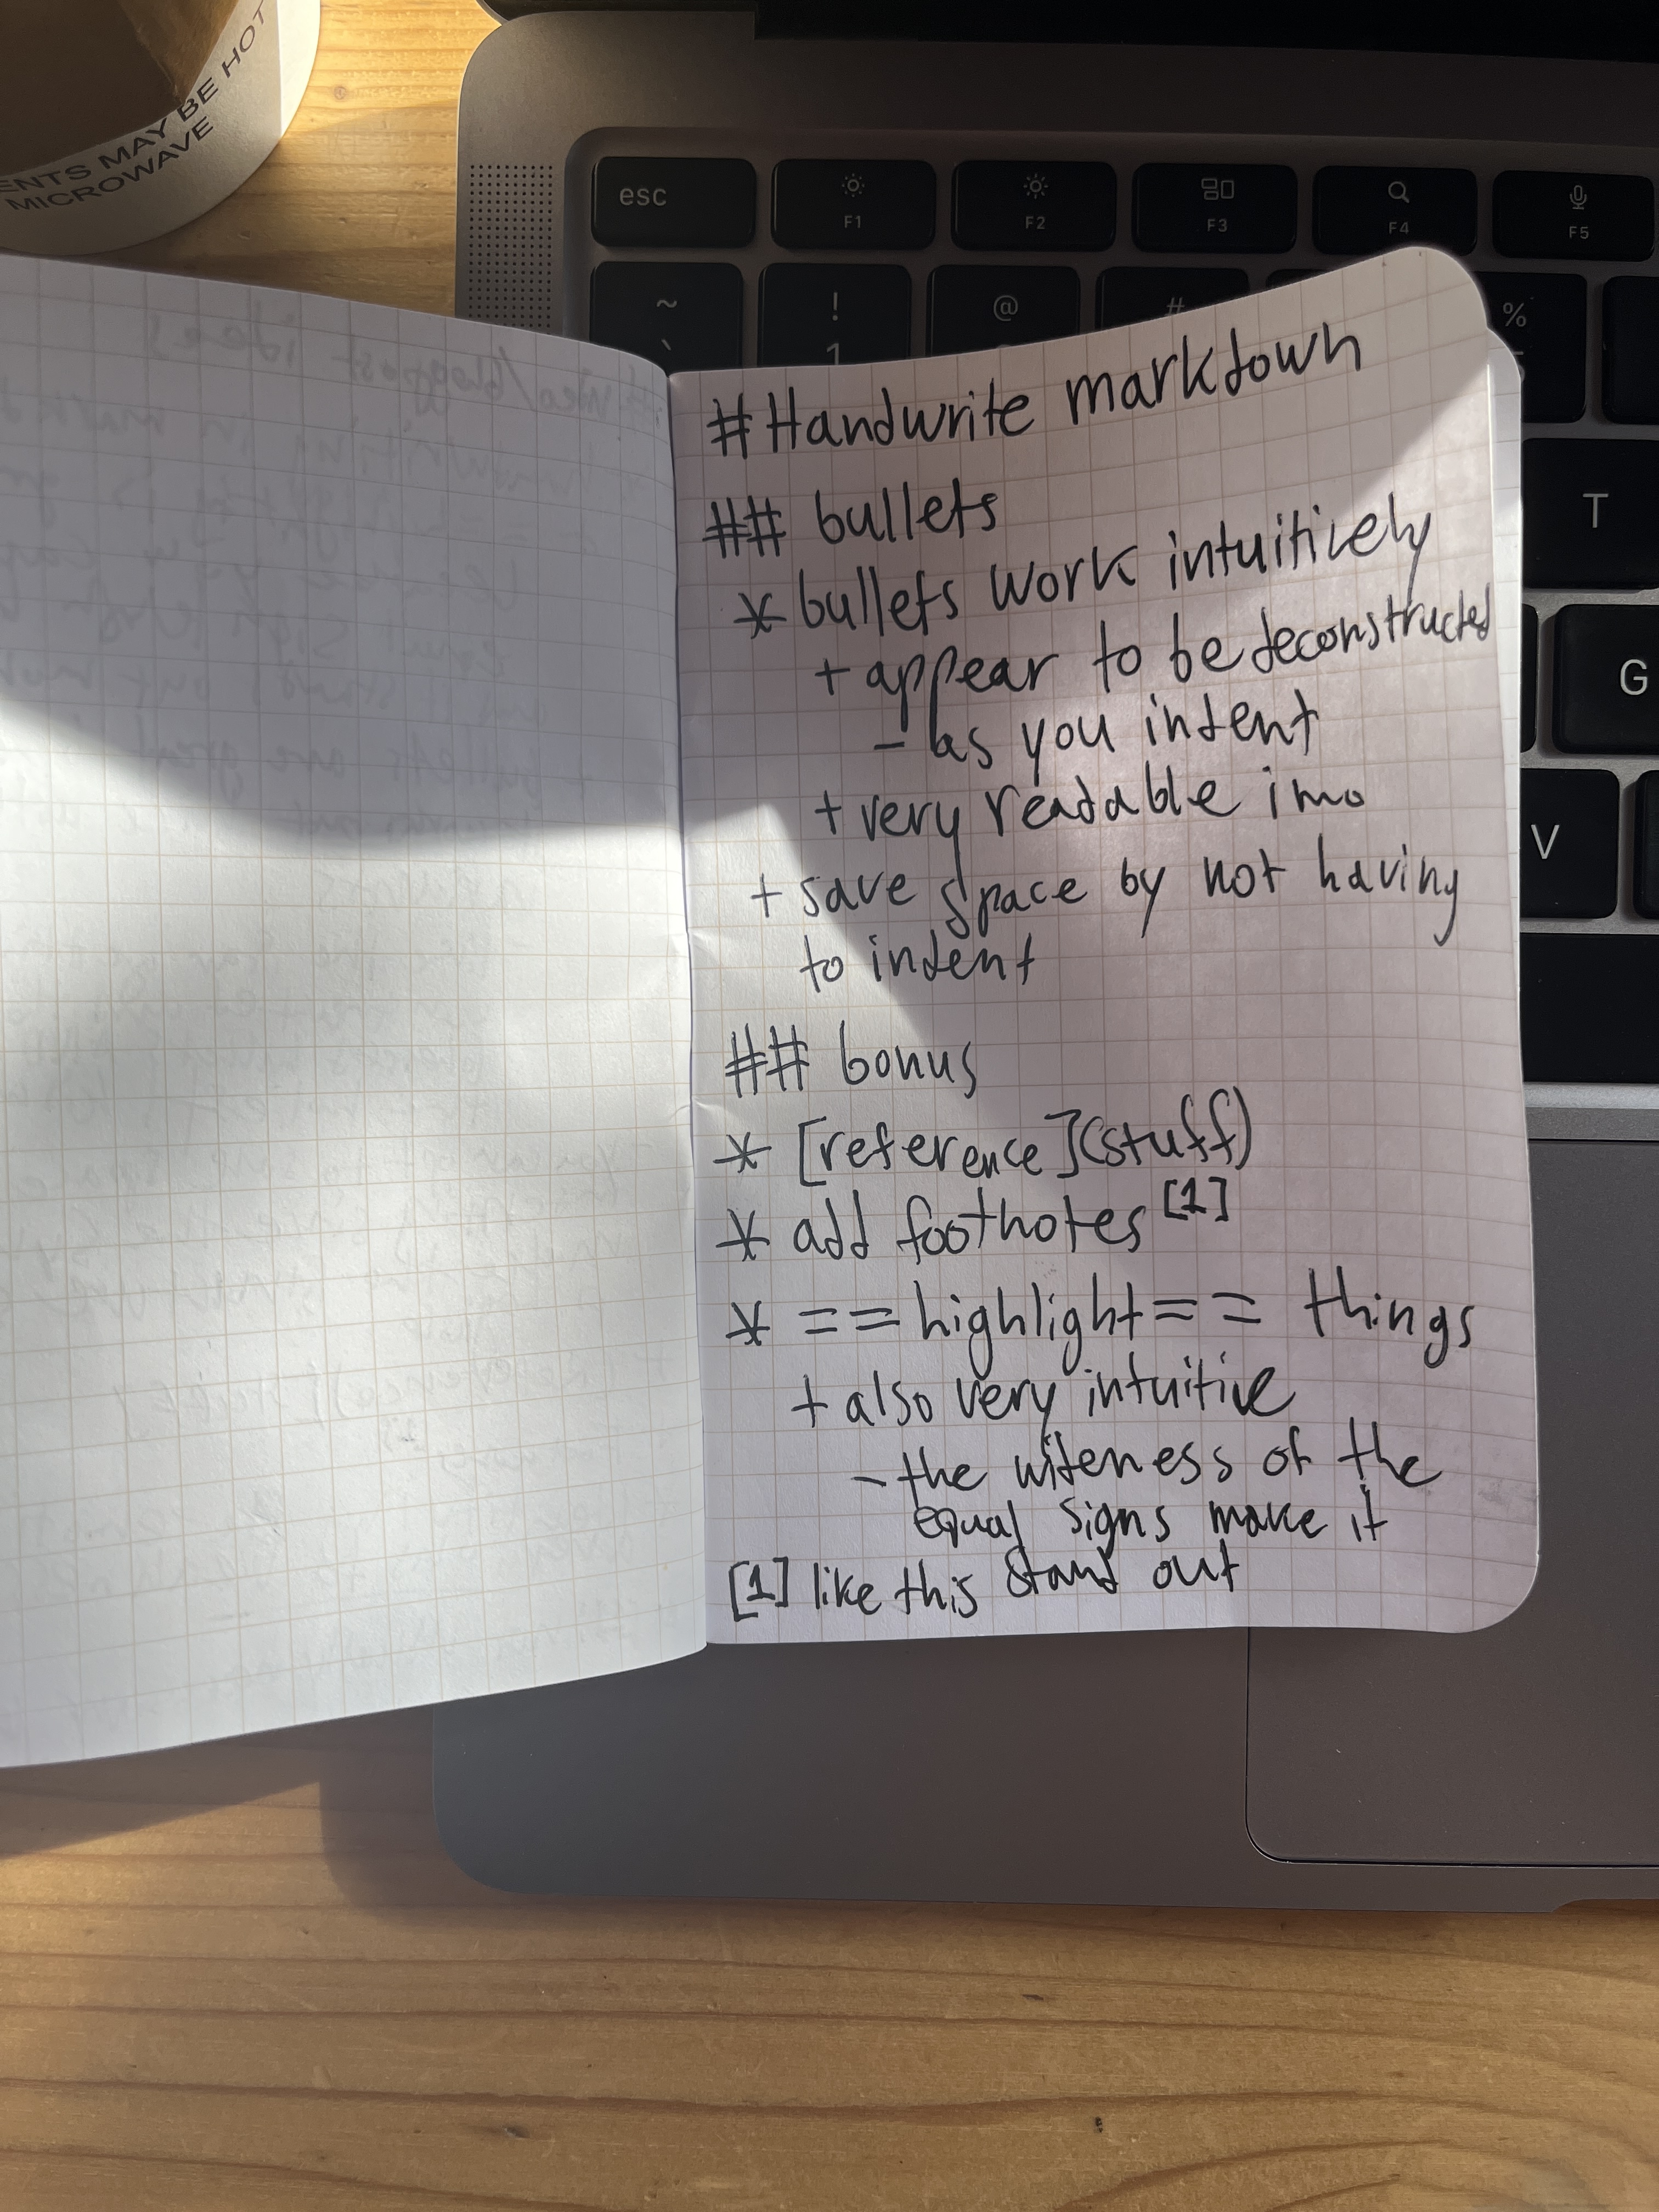 ENTS MAY BE HOT
MICROWAVE
esc
F1
F2
F3
F4
F5
~
!
@
#
%
`
1
T
G
V
# Handwrite markdown
## bullets
* bullets work intuitively
+ appear to be deconstructed
- as you indent
+ very readable imo
+ save space by not having
to indent
## bonus
* [reference](stuff)
* add footnotes [1]
* ==highlight== things
+ also very intuitive
- the witeness of the
equal signs make it
stand out
[1] like this